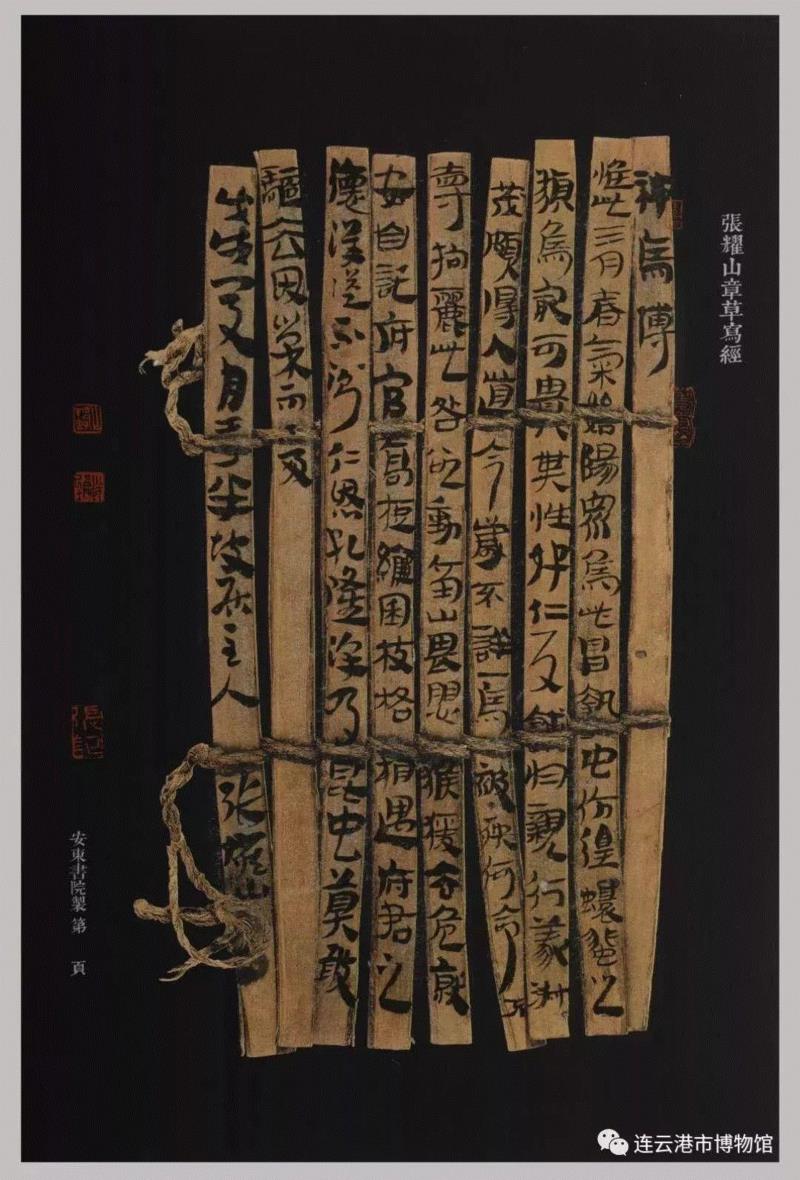 張耀山章草寫經
神烏傅
惟此三月春氣始陽眾鳥皆昌執虫仿徨蠉蜚之
類烏冣可貴其性好仁反餔於親行義淑
茂頗得人道今歲不詳一烏被殃何命不
壽狗麗此咎欲勳南山畏懼猴猨去危就
安自託府官高枝格相遇府君之
德洋洋不測仁恩孔隆澤乃昆虫莫敢
去因巢而處
戊戌夏月半坡居主人 張耀山
安東書院製 第 頁
连云港市博物馆